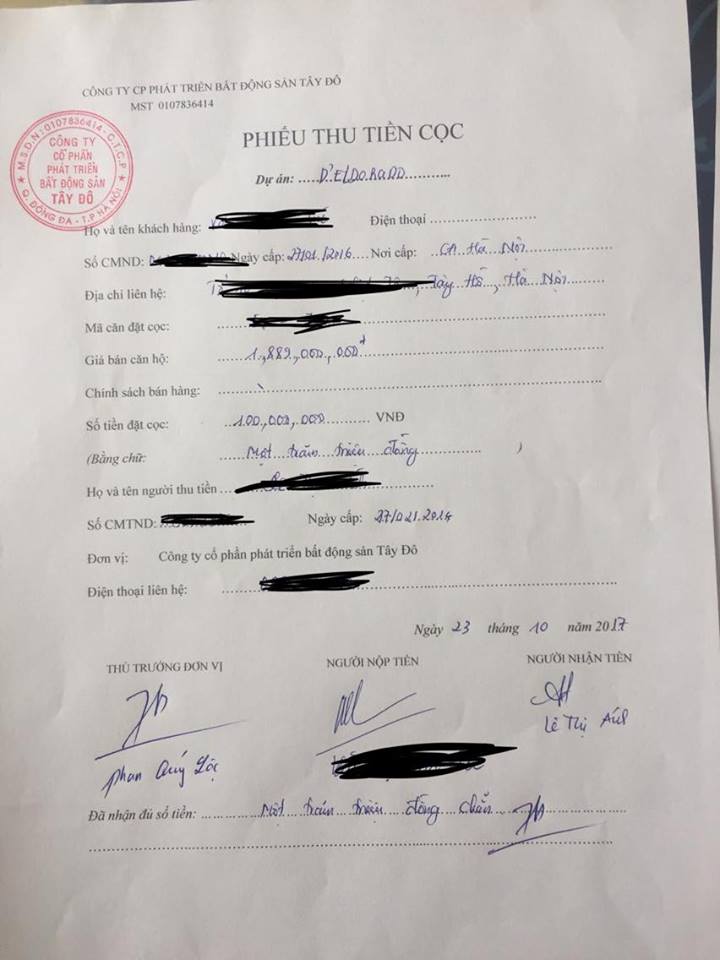 CÔNG TY CP PHÁT TRIỂN BẤT ĐỘNG SẢN TÂY ĐÔ
MST 0107836414
M.S.D.N: 0107836414 - C.T.C.P
CÔNG TY
CỔ PHẦN
PHÁT TRIỂN
BẤT ĐỘNG SẢN
TÂY ĐÔ
Q. ĐỐNG ĐA - T.P HÀ NỘI
PHIẾU THU TIỀN CỌC
Dự án: .....D'ELDORADO...........
Họ và tên khách hàng: Điện thoại ...........................
Số CMND: Ngày cấp: 27/01/2016 Nơi cấp: CA Hà Nội
Địa chỉ liên hệ: Tây Hồ, Hà Nội
Mã căn đặt cọc:
Giá bán căn hộ: 1,889,000,000đ
Chính sách bán hàng:
Số tiền đặt cọc: 100,000,000 VNĐ
(Bằng chữ: Một trăm triệu đồng )
Họ và tên người thu tiền
Số CMTND: Ngày cấp:
Đơn vị: Công ty cổ phần phát triển bất động sản Tây Đô
Điện thoại liên hệ:
Ngày 23 tháng 10 năm 2017
THỦ TRƯỞNG ĐƠN VỊ NGƯỜI NỘP TIỀN NGƯỜI NHẬN TIỀN
Lê Thị
Phan Quý Lộc
Đã nhận đủ số tiền: Một trăm triệu đồng chẵn